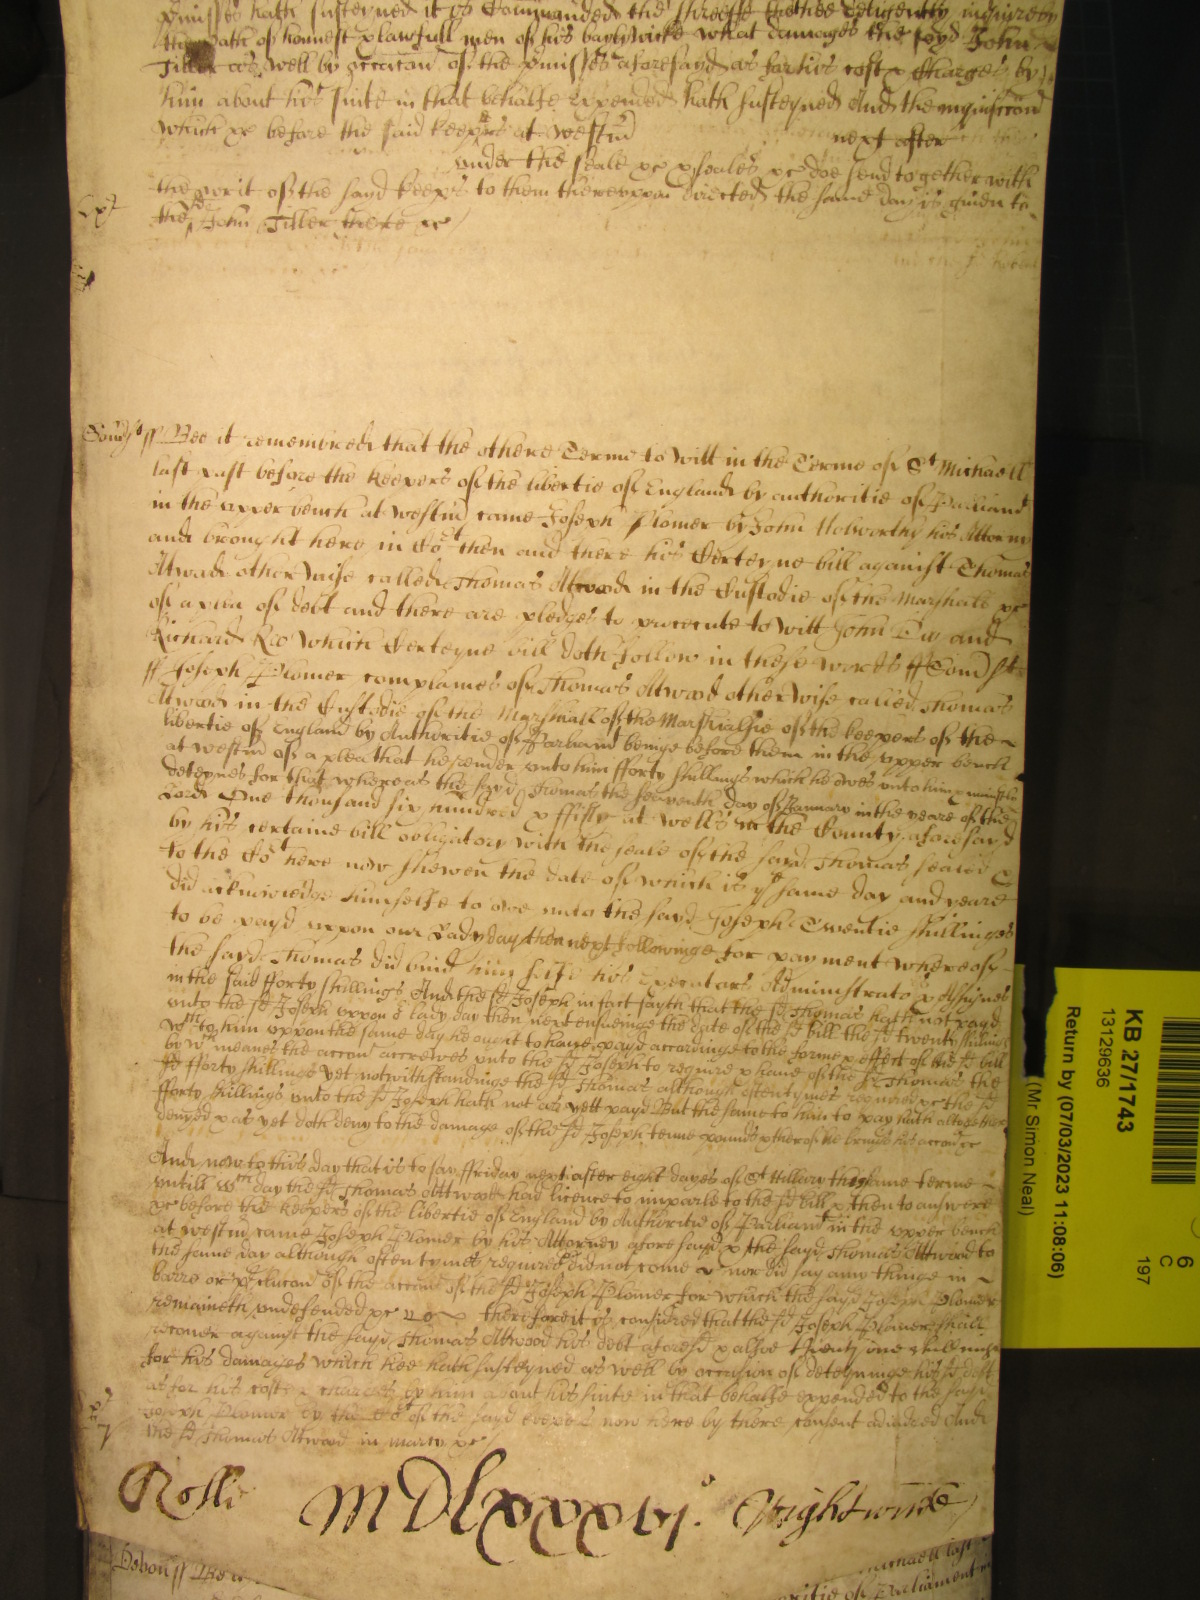 hath susteyned it is Commanded the Shreiffe
oath of honnest & lawfull men of his baylywicke what damages the sayd John
Tiller as well by occacon of the p'misses aforesayd as for his cost & Charges by
him about his suite in that behalfe expended hath susteyned And the inquisicon
which &c before the said keepers at Westm next after
under the seale &c & seales &c doe send together with
the writ of the sayd keeps to them thereuppon directed the same day is given to
the sd John Tiller there &c
Somst ff Bee it remembred that the othere Terme to Witt in the Terme of St Michaell
last past before the Keepers of the libertie of England by authoritie of Parliamt
in the upper bench at Westm came Joseph Plomer by John Holworthy his Attorny
and brought here in Cot then and there his Certeyne bill against Thomas
Atwade otherwise called Thomas Atwood in the Custodie of the Marshall &c
of a plea of debt and there are pledges to prosecute to Witt John Dw and
Richard Roo Which Certeyne bill doth follow in these words ff Som st
ff Joseph Plomer complaines of Thomas Atwood otherwise called Thomas
Atwood in the Custodie of the Marshall of the Marshialsie of the keepers of the
libertie of England by Authoritie of Parliamt beinge before them in the upper bench
at Westm of a plea that he render unto him fforty shillings which he owes unto him &
deteynes for that whereas the sayd Thomas the seaventh day of January in the yeare of the
Lord One thousand six hundred & ffifty at Wells in the County aforesayd
by his certaine bill obligatory with the seale of the sayd Thomas sealed &
to the Cot here now shewen the date of which is ye same day and yeare
did acknowledge himselfe to owe unto the sayd Joseph Twentie shillinges
to be payd uppon our Lady day then next followinge for payment whereof
the sayd Thomas did bind him selfe his Executors Administrators & Assignes
in the said fforty shillings And the sd Joseph in fact sayth that the sd Thomas hath not payd
unto the sd Joseph uppon or lady day then next ensueinge the date of the sd bill the sd twenty shillings
wch to him uppon the same day he ought to have payd accordinge to the forme & effect of the sd bill
by wch meanes the accon accrewes unto the sd Joseph to require & have of the sd Thomas the
sd fforty shillings yet notwithstandinge the sd Thomas although oftentymes required &c the sd
fforty shillings unto the sd Joseph hath not as yett payd But the same to him to pay hath altogether
denyed & as yet doth deny to the damage of the sd Joseph tenne pounds & thereof he brings his accon &c
And now to this day that is to say ffriday next after eight dayes of St Hillary this same terme
untill wch day the sd Thomas Attwood had licence to imparle to the sd bill & then to answere
&c before the keepers of the libertie of England by Authoritie of Parliamt in the upper bench
at Westm came Joseph Plomer by his Attorney aforesayd & the sayd Thomas Attwood to
the same day although oftentymes required did not come nor did say any thinge in
barre or p'clucon of the accon of the sd Joseph Plomer for which the sayd Joseph Plomer
remaineth undefended &c therefore it is considred that the sd Joseph Plomer shall
recover against the sayd Thomas Attwood his debt aforesd & alsoe Twenty one shillings
for his damages which hee hath susteyned as well by occasion of deteyninge his sd debt
as for his costs & charges by him about his suite in that behalfe expended to the sayd
Joseph Plomer by the Cot of the sayd keepers now here by there consent adiudged And
the sd Thomas Atwood in mercy &c
Rolle MDlxxxvjo Wightwicke
Devon ff Bee it Michaell last
authoritie of Parliament
KB 27/1743
13129636
Return by (07/03/2023 11:08:06)
(Mr Simon Neal)
6
C
197